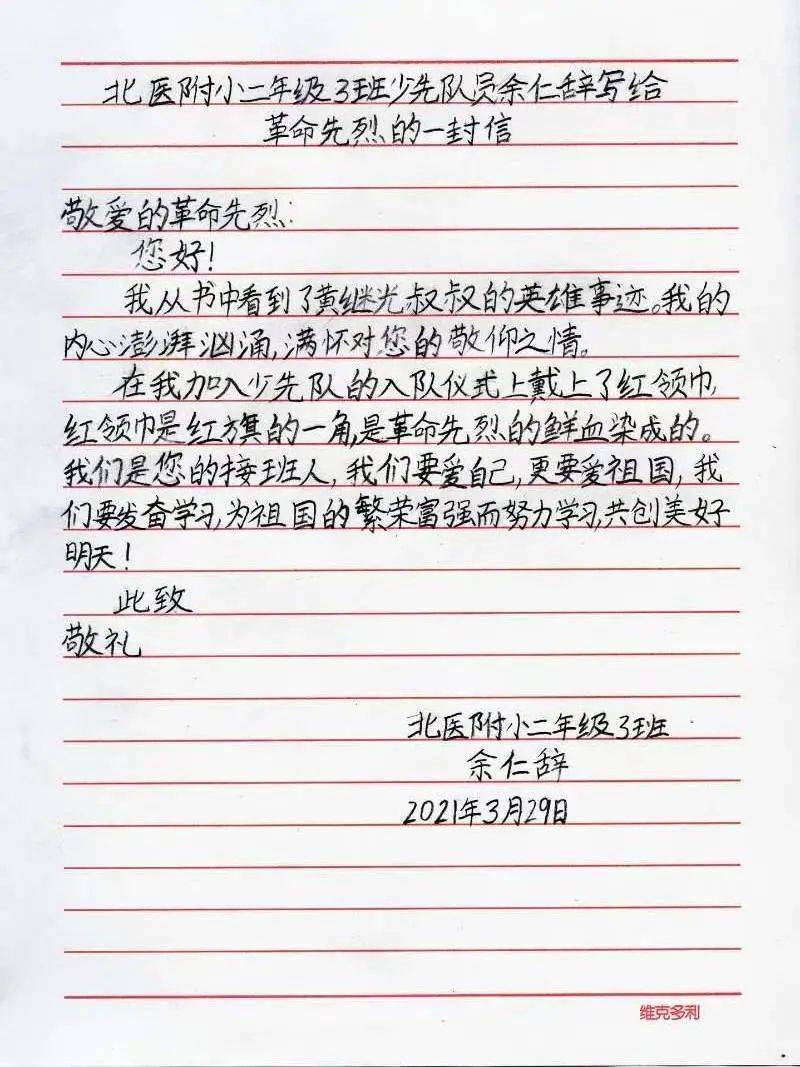 北医附小二年级3班少先队员余仁辞写给
革命先烈的一封信
敬爱的革命先烈:
您好!
我从书中看到了黄继光叔叔的英雄事迹。我的
内心澎湃汹涌,满怀对您的敬仰之情。
在我加入少先队的入队仪式上戴上了红领巾,
红领巾是红旗的一角,是革命先烈的鲜血染成的。
我们是您的接班人,我们要爱自己,更要爱祖国,我
们要发奋学习,为祖国的繁荣富强而努力学习,共创美好
明天!
此致
敬礼
北医附小二年级3班
余仁辞
2021年3月29日
维克多利